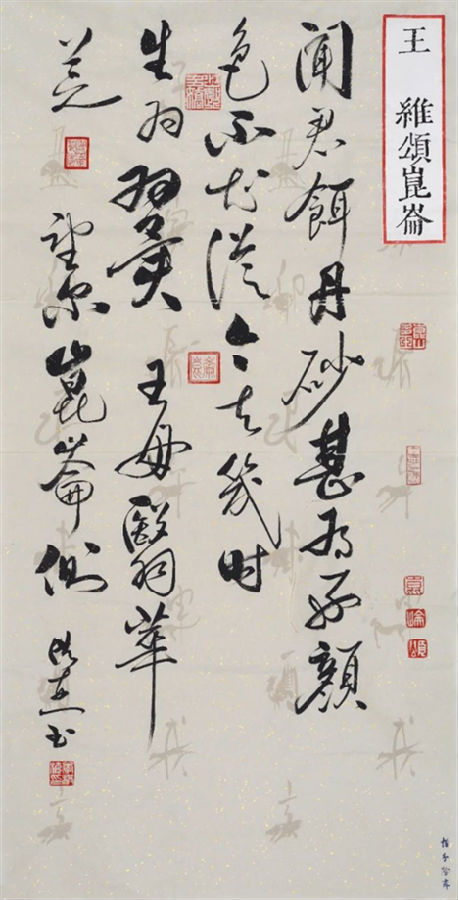 王 維頌崑崙
聞君餌丹砂甚有好顏
色不知從今去幾时
生羽翼 王母翳華
芝 望尔崑崙侧
书
崑
崙
頌